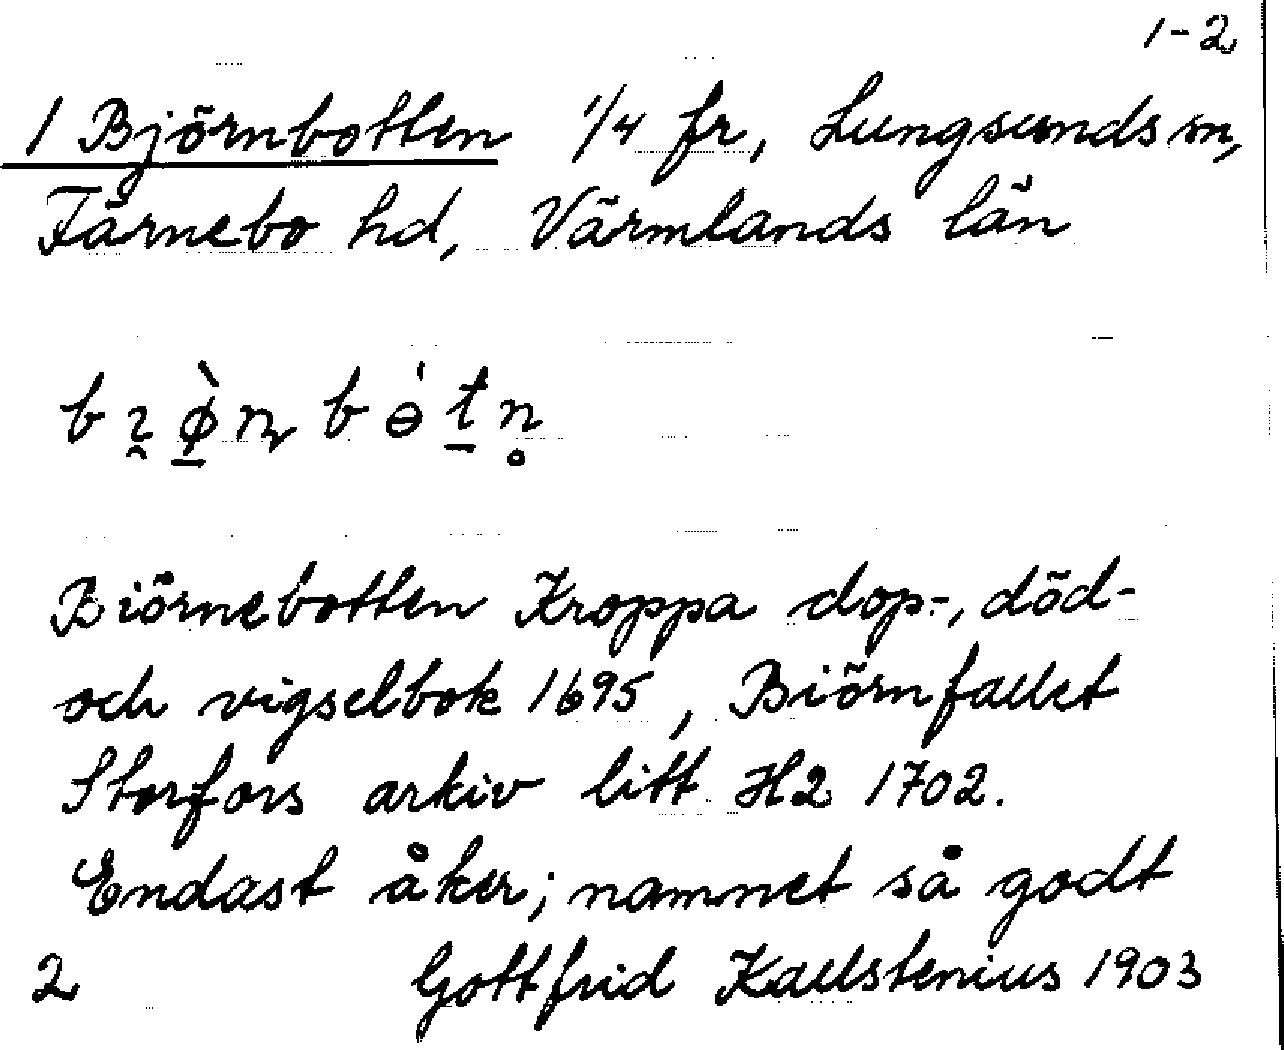 1-2
1 Björnbotten 1/4 fr, Lungsunds sn,
Färnebo hd, Värmlands län
Biörnebotten Kroppa dop-, död-
och vigselbok 1695, Biörnfallet
Storfors arkiv litt H2 1702.
Endast åker; namnet så godt
2 Gottfrid Kallstenius 1903